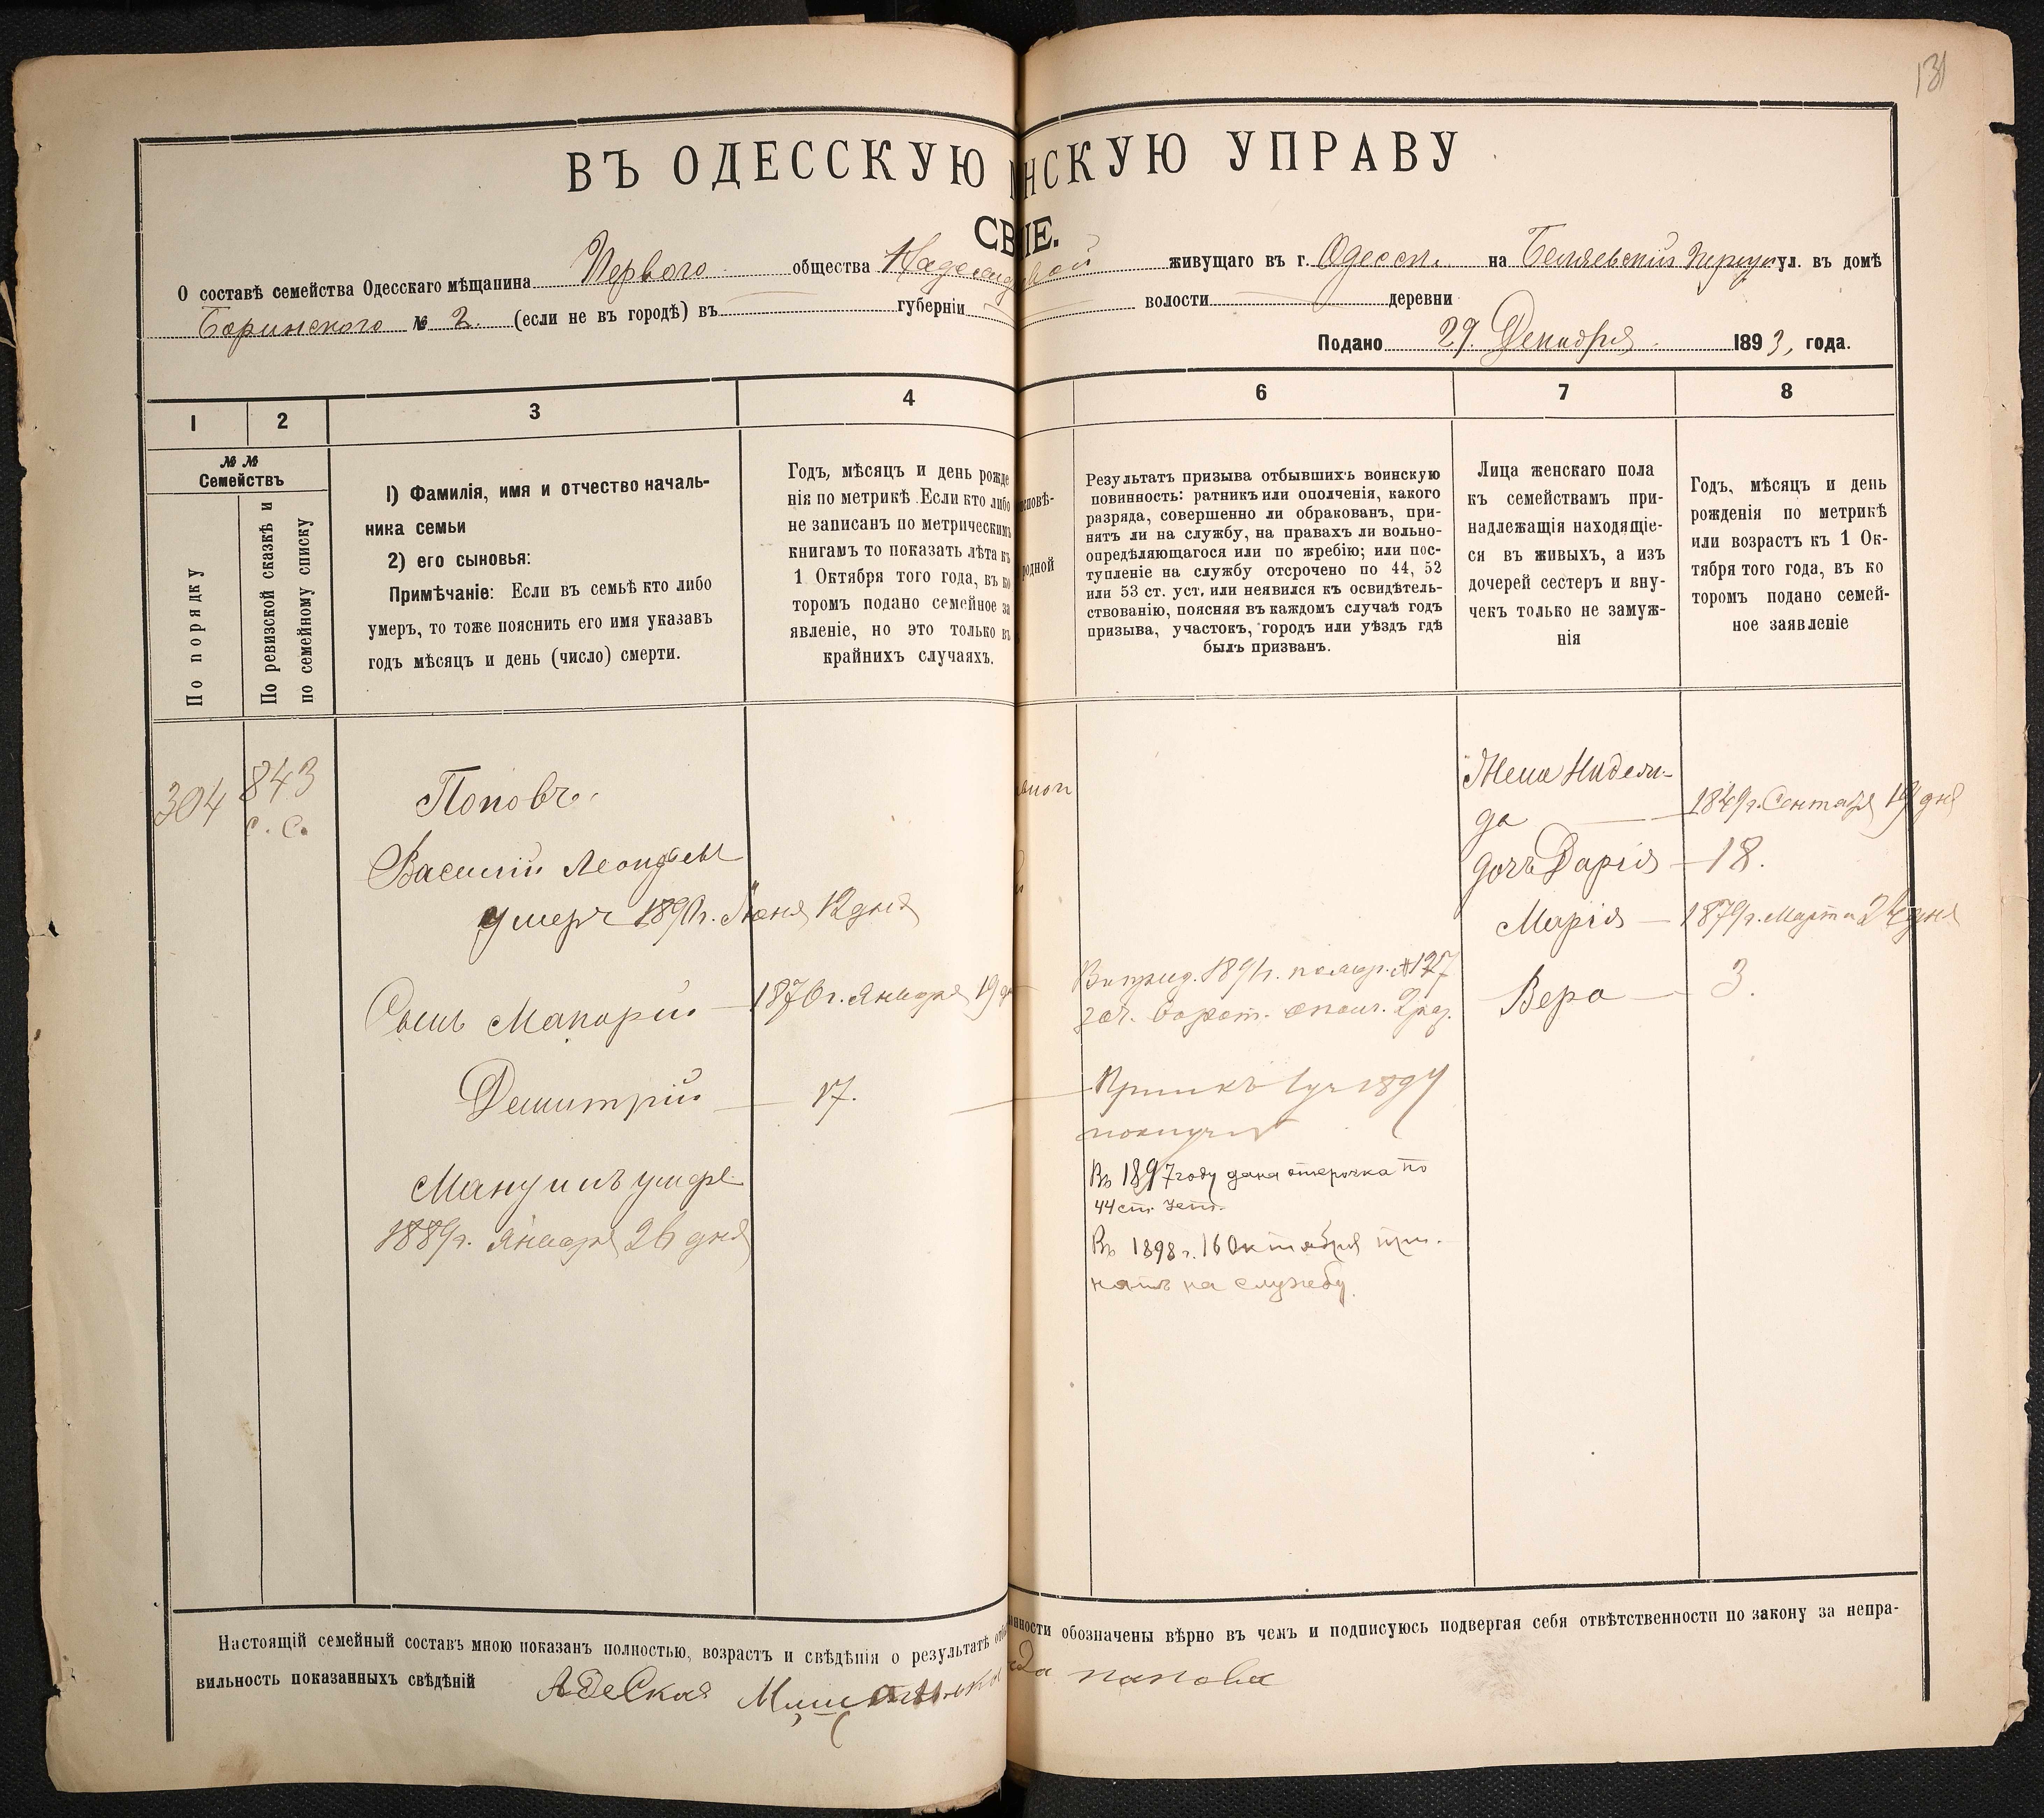 131
ВЪ ОДЕССКУЮ НСКУЮ УПРАВУ
СВ ІЕ.
О составѣ семейства Одесскаго мѣщанина Перваго общества живущаго въ г. Одессѣ на ул. въ домѣ
Баринского № 2. (если не въ городѣ) въ губерніи волости деревни
Подано 29. Декабря 1893, года.
1 2 3 4 6 7 8
№ № Семействъ
По порядку
По ревизской сказкѣ и по семейному списку
1) Фамилія, имя и отчество началь-
ника семьи
2) его сыновья:
Примѣчаніе: Если въ семьѣ кто либо
умеръ, то тоже пояснить его имя указавъ
годъ мѣсяцъ и день (число) смерти.
Годъ, мѣсяцъ и день рожде
нія по метрикѣ. Если кто либо
не записанъ по метрическимъ
книгамъ то показать лѣта къ
1 Октября того года, въ ко
торомъ подано семейное за
явленіе, но это только въ
крайнихъ случаяхъ.
исповѣ-
родной
Результатъ призыва отбывшихъ воинскую
повинность: ратникъ или ополченія, какого
разряда, совершенно ли обракованъ, при-
нятъ ли на службу, на правахъ ли вольно-
опредѣляющагося или по жребію; или пос-
тупленіе на службу отсрочено по 44, 52
или 53 ст. уст. или неявился къ освидѣтель-
ствованію, поясняя въ каждомъ случаѣ годъ
призыва, участокъ, городъ или уѣздъ гдѣ
былъ призванъ.
Лица женскаго пола
къ семействамъ при-
надлежащія находящіе-
ся въ живыхъ, а изъ
дочерей сестеръ и вну-
чекъ только не замуж-
нія
Годъ, мѣсяцъ и день
рожденія по метрикѣ
или возрастъ къ 1 Ок-
тября того года, въ ко
торомъ подано семей-
ное заявленіе
304 843
с. с.
Поповъ
Василій Леонтьев
умеръ 1890г. Июня 12 дня
Сынъ Макарій — 1870г. Января 19 дн
Димитрій — 17.
Мануилъ умеръ
1889г. Января 26 дня
В призыв. 1891г. по жер. № 127
зач. в рат. ополч. 2 раз.
1894
Въ 1897 году дана отсрочка по
44 ст. Уст.
Въ 1898 г. 16 Октября при-
нятъ на службу.
Жена Надеж-
да — 1849г. Сентября 19 дня
дочь Дарія — 18.
Марія — 1879г. Марта 24 дня
Вера — 3.
Настоящій семейный составъ мною показанъ полностью, возрастъ и свѣдѣнія о результатѣ отбы анности обозначены вѣрно въ чемъ и подписуюсь подвергая себя отвѣтственности по закону за непра-
вильность показанныхъ свѣдѣній
Адеская папова